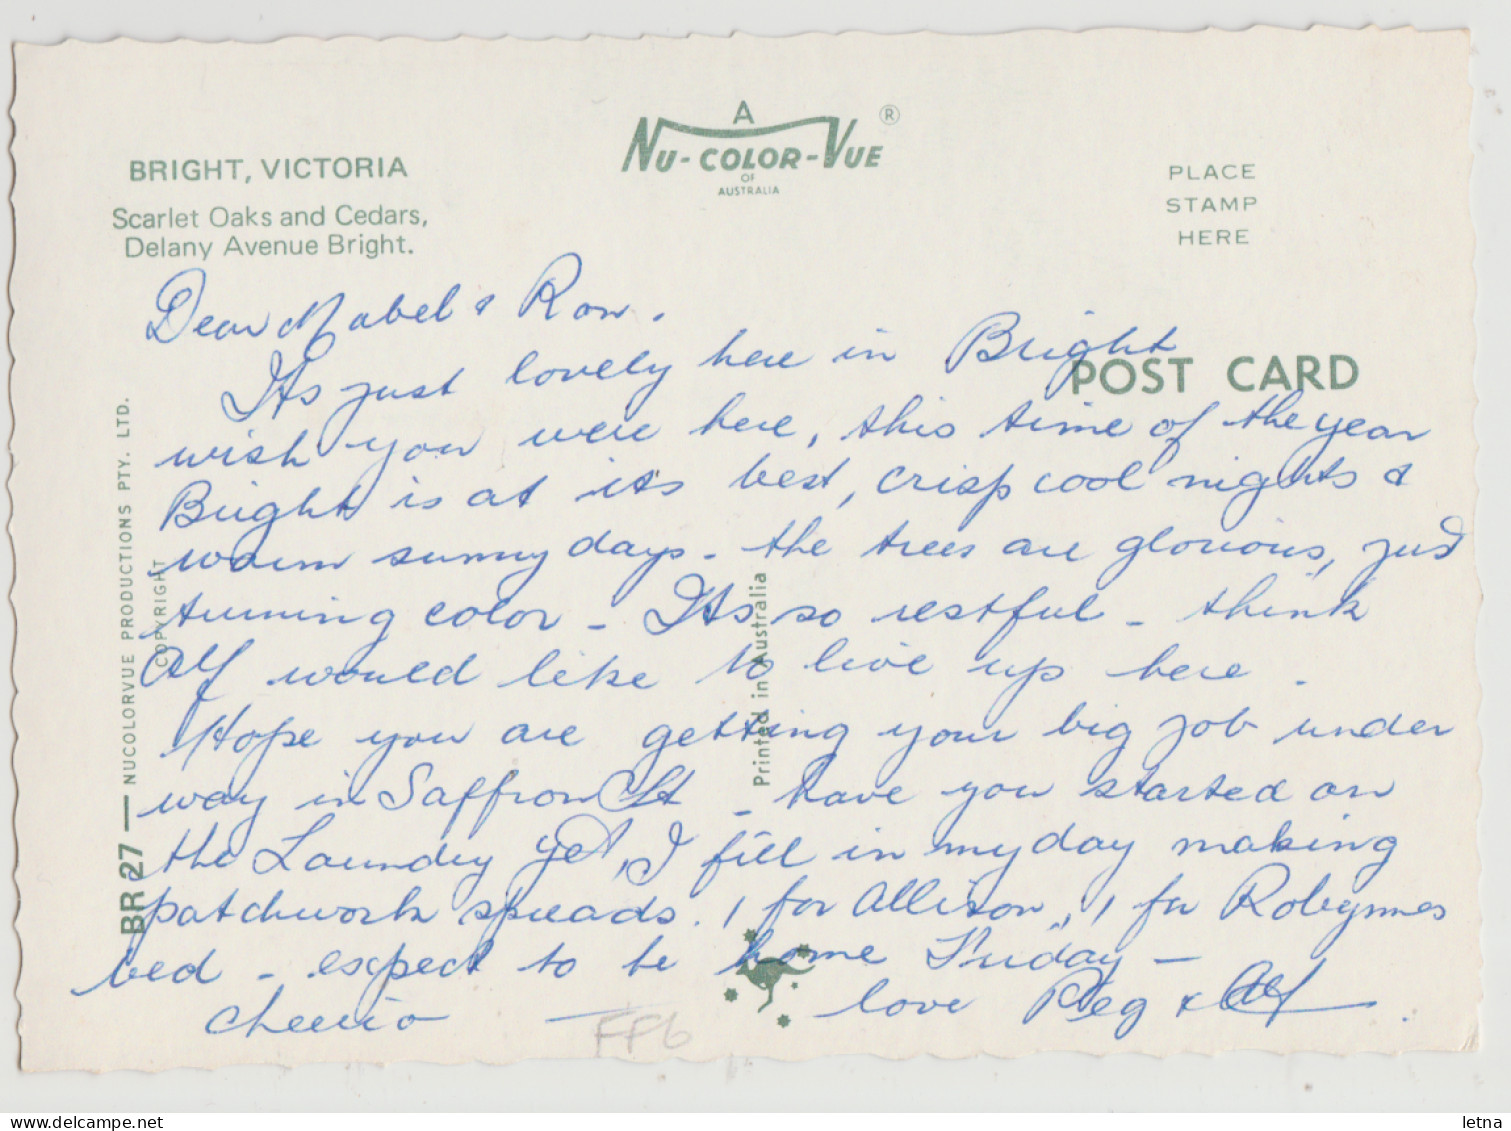 A
NU-COLOR-VUE ®
OF
AUSTRALIA
BRIGHT, VICTORIA
Scarlet Oaks and Cedars,
Delany Avenue Bright.
PLACE
STAMP
HERE
POST CARD
Dear Mabel & Ron.
Its just lovely here in Bright
wish you were here, this time of the year
Bright is at its best, crisp cool nights &
warm sunny days - the trees are glorious, just
turning color - Its so restful - think
Alf would like to live up here.
Hope you are getting your big job under
way in Saffron St - have you started on
the Laundry yet, I fill in my day making
patchwork spreads. 1 for Allison, 1 for Robynnes
bed - expect to be home Friday -
cheerio - love Peg & Alf.
BR 27 — NUCOLORVUE PRODUCTIONS PTY. LTD.
COPYRIGHT
Printed in Australia
FF6
www.delcampe.net
letna